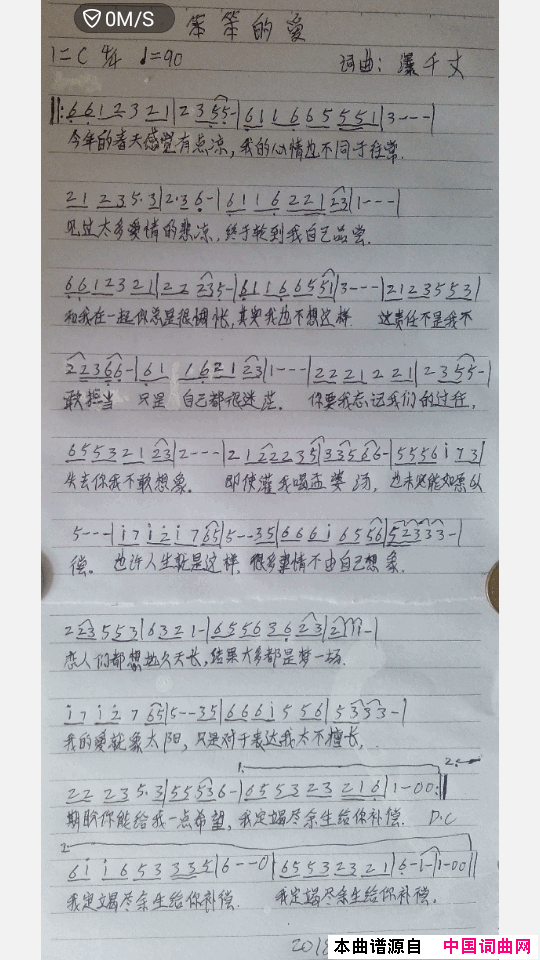 0M/S
笨笨的爱
1=C 4/4 ♩=90
词曲：瀑千丈
‖: 6 6 1 2 3 2 1 | 2 3 5 5 - | 6 1 1 6 6 5 5 5 1 | 3 - - - |
今年的春天感觉有点凉，我的心情也不同于往常.
2 1 2 2 3 5· 3 | 2· 3 6 - | 6 1 1 6 2 2 1 2 3 | 1 - - - |
见过太多爱情的悲凉，终于轮到我自己品尝.
6 6 1 2 3 2 1 | 2 2 2 3 5 - | 6 1 1 6 6 5 5 1 | 3 - - - | 2 1 2 3 5 5 3 |
和我在一起你总是很惆怅，其实我也不想这样. 这责任不是我不
2 2 3 6 6 - | 6 1 1 6 2 1 2 3 | 1 - - - | 2 2 2 1 2 2 1 | 2 3 5 5 - |
敢担当 只是 自己都很迷茫。 你要我忘记我们的过往，
6 5 5 3 2 1 2 3 | 2 - - - | 2 1 2 2 2 3 5 | 3 3 5 6 6 - | 5 5 5 6 i 7 3 |
失去你我不敢想象。 即使灌我喝孟婆汤，也未必能如愿以
5 - - - | i 7 i 2 i 7 6 5 | 5 - - 3 5 | 6 6 6 i 6 5 5 6 | 5 2 3 3 3 - |
偿。 也许人生就是这样，很多事情不由自己想象.
2 2 3 5 5 3 | 6 3 2 1 - | 6 5 5 6 3 6 2 3 | 2 1 1 1 - |
恋人们都想地久天长，结果大多都是梦一场.
i 7 i 2 7 6 5 | 5 - - 3 5 | 6 6 6 i 5 5 6 | 5 3 3 3 - |
我的爱就象太阳，只是对于表达我太不擅长，
1. 2.
2 2 2 3 5· 3 | 5 5 5 3 6 - | 6 5 5 3 2 3 2 1 6 | 1 - 0 0 :‖
期盼你能给我一点希望，我定竭尽余生给你补偿. D.C
2
6 i i 6 5 3 3 3 5 | 6 - - - 0 | 6 5 5 3 2 3 2 1 | 6 - 1 - | 1 - 0 0 ‖
我定竭尽余生给你补偿. 我定竭尽余生给你补偿。
2018
本曲谱源自 中国词曲网